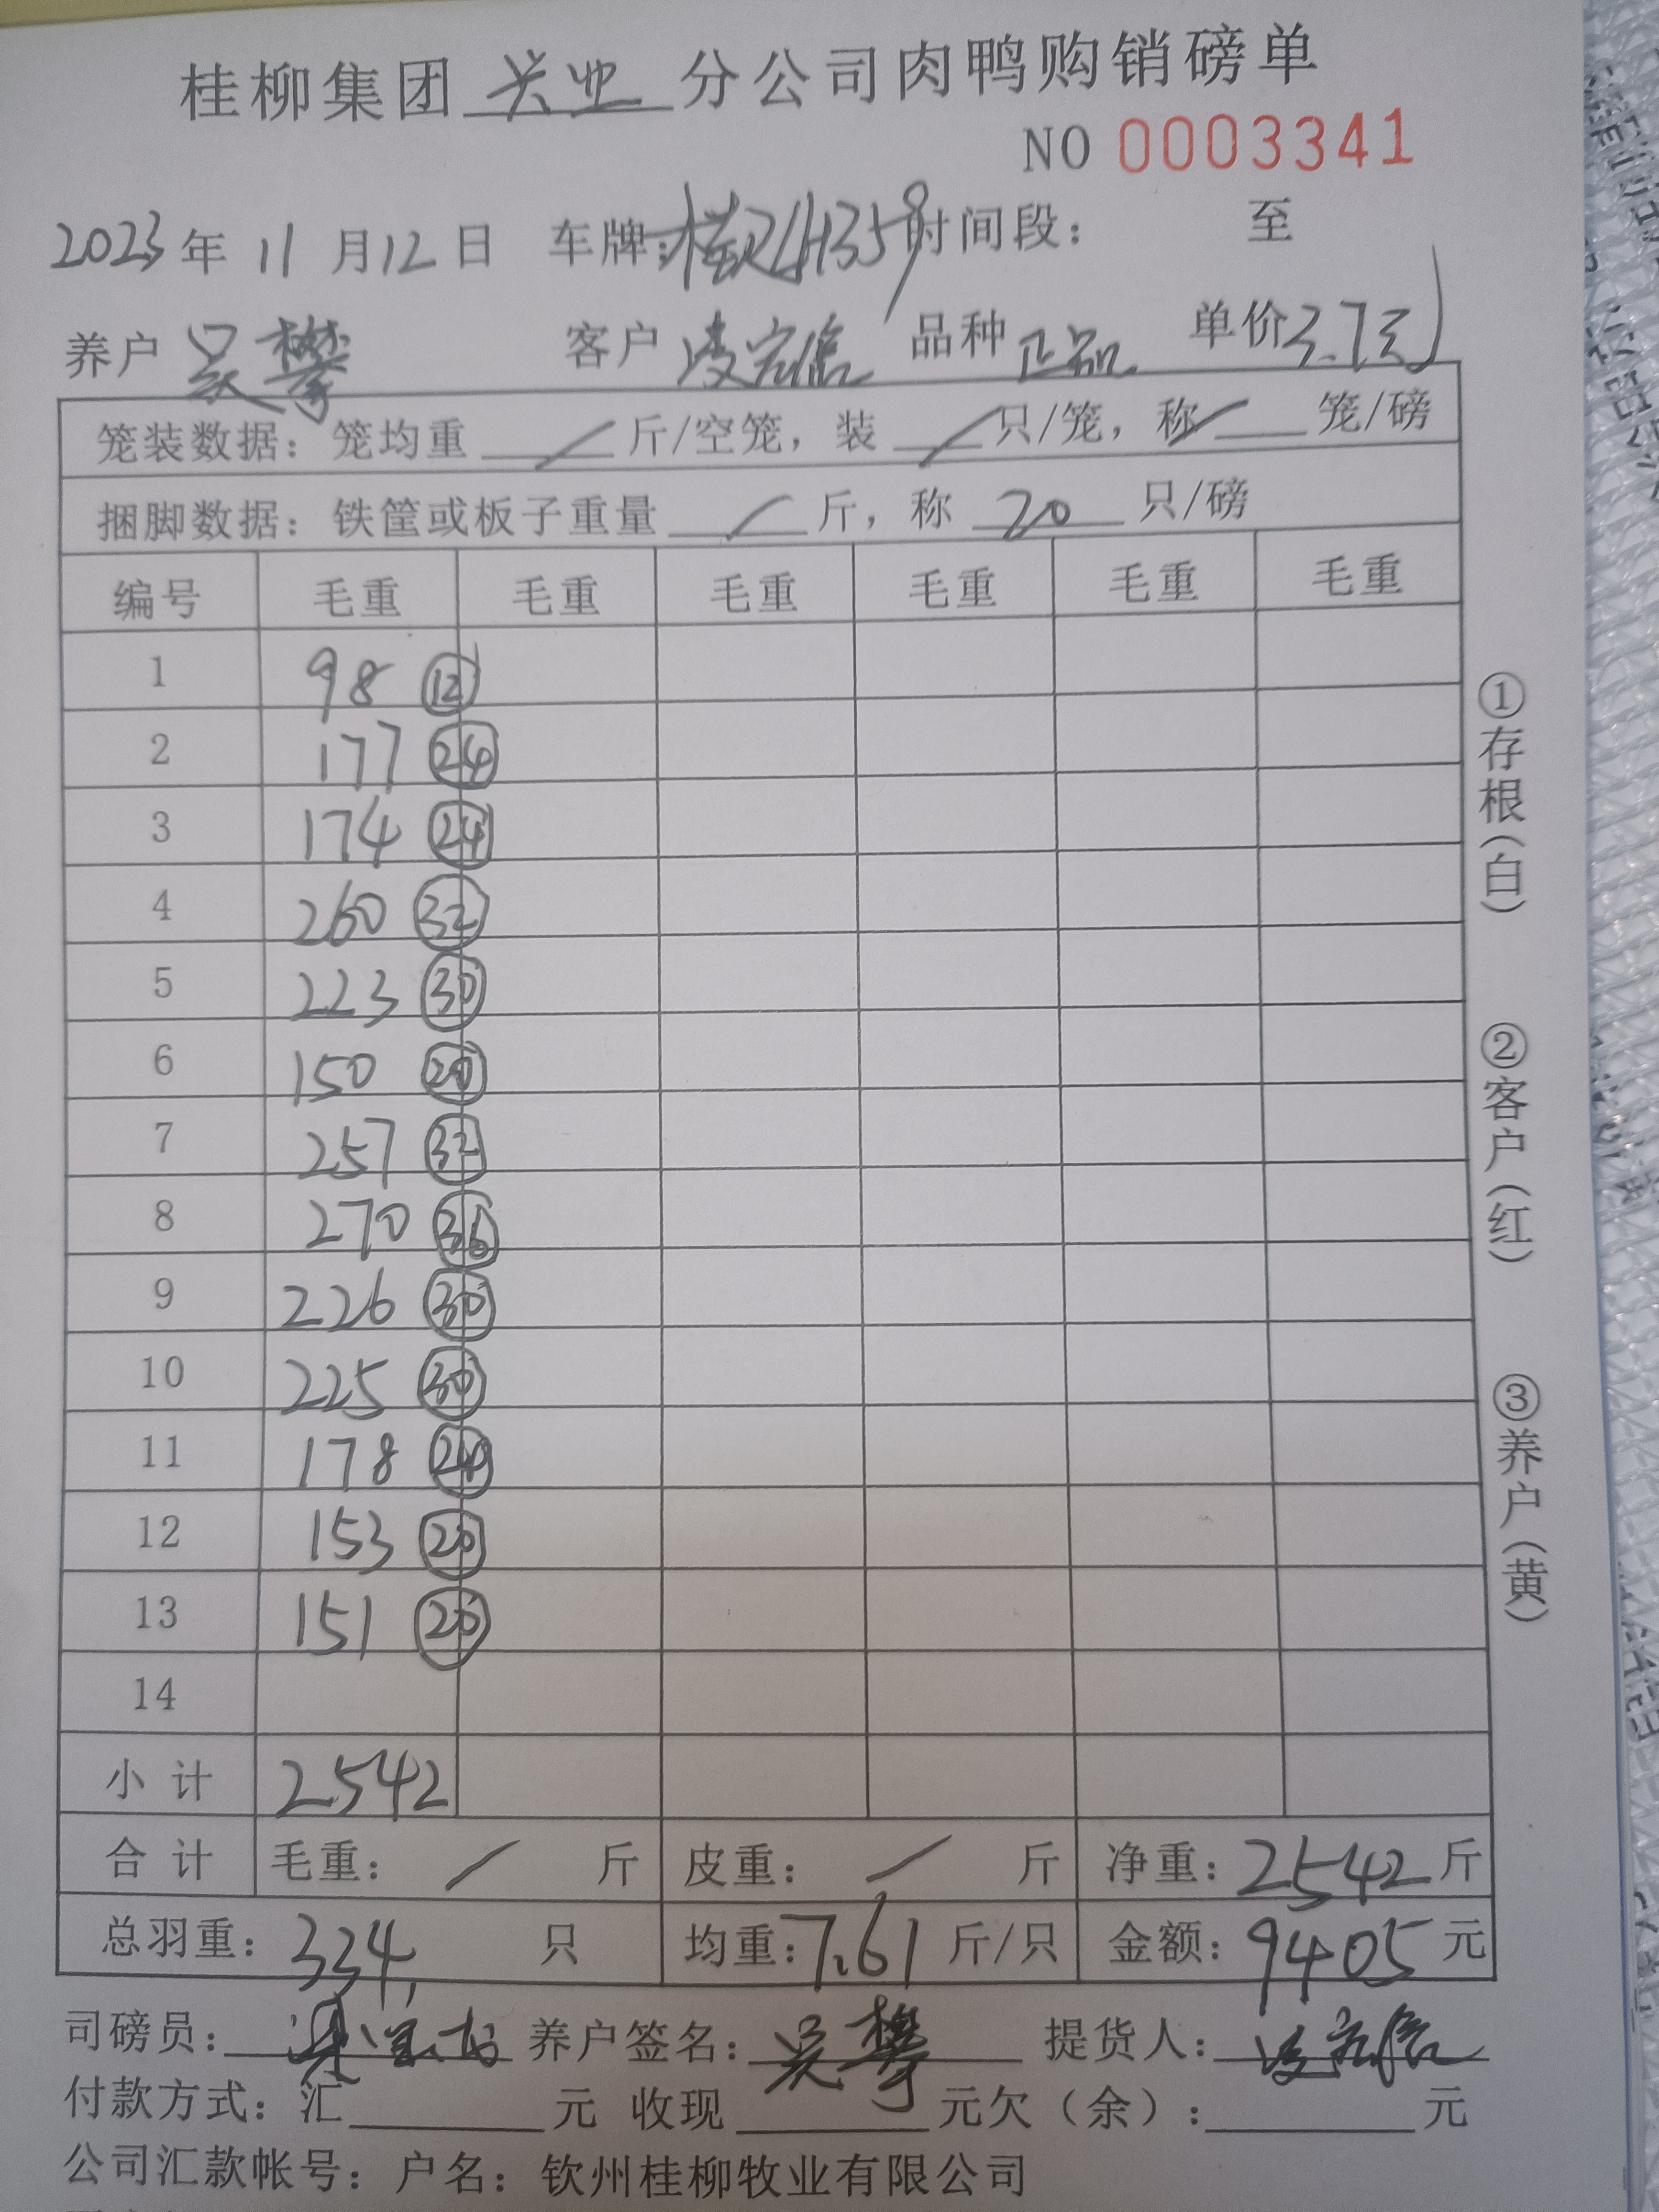 桂柳集团 兴业 分公司肉鸭购销磅单
NO 0003341
2023年 11 月 12 日 车牌: 时间段: 至
养户 吴攀 客户 凌宏信 品种 正品 单价 3.7元
笼装数据: 笼均重 / 斤/空笼, 装 / 只/笼, 称 / 笼/磅
捆脚数据: 铁筐或板子重量 / 斤, 称 20 只/磅
编号 毛重 毛重 毛重 毛重 毛重 毛重
1 98 ⑫
2 177 ㉔
3 174 ㉔
4 260 ㉜
5 223 ㉚
6 150 ⑳
7 257 ㉜
8 270 ㊱
9 226 ㉚
10 225 ㉚
11 178 ㉔
12 153 ⑳
13 151 ⑳
14
小计 2542
合计 毛重: / 斤 皮重: / 斤 净重: 2542 斤
总羽重: 334 只 均重: 7.61 斤/只 金额: 9405 元
司磅员: 养户签名: 吴攀 提货人: 凌宏信
付款方式: 汇 元 收现 元欠(余): 元
公司汇款帐号: 户名: 钦州桂柳牧业有限公司
①存根(白)
②客户(红)
③养户(黄)